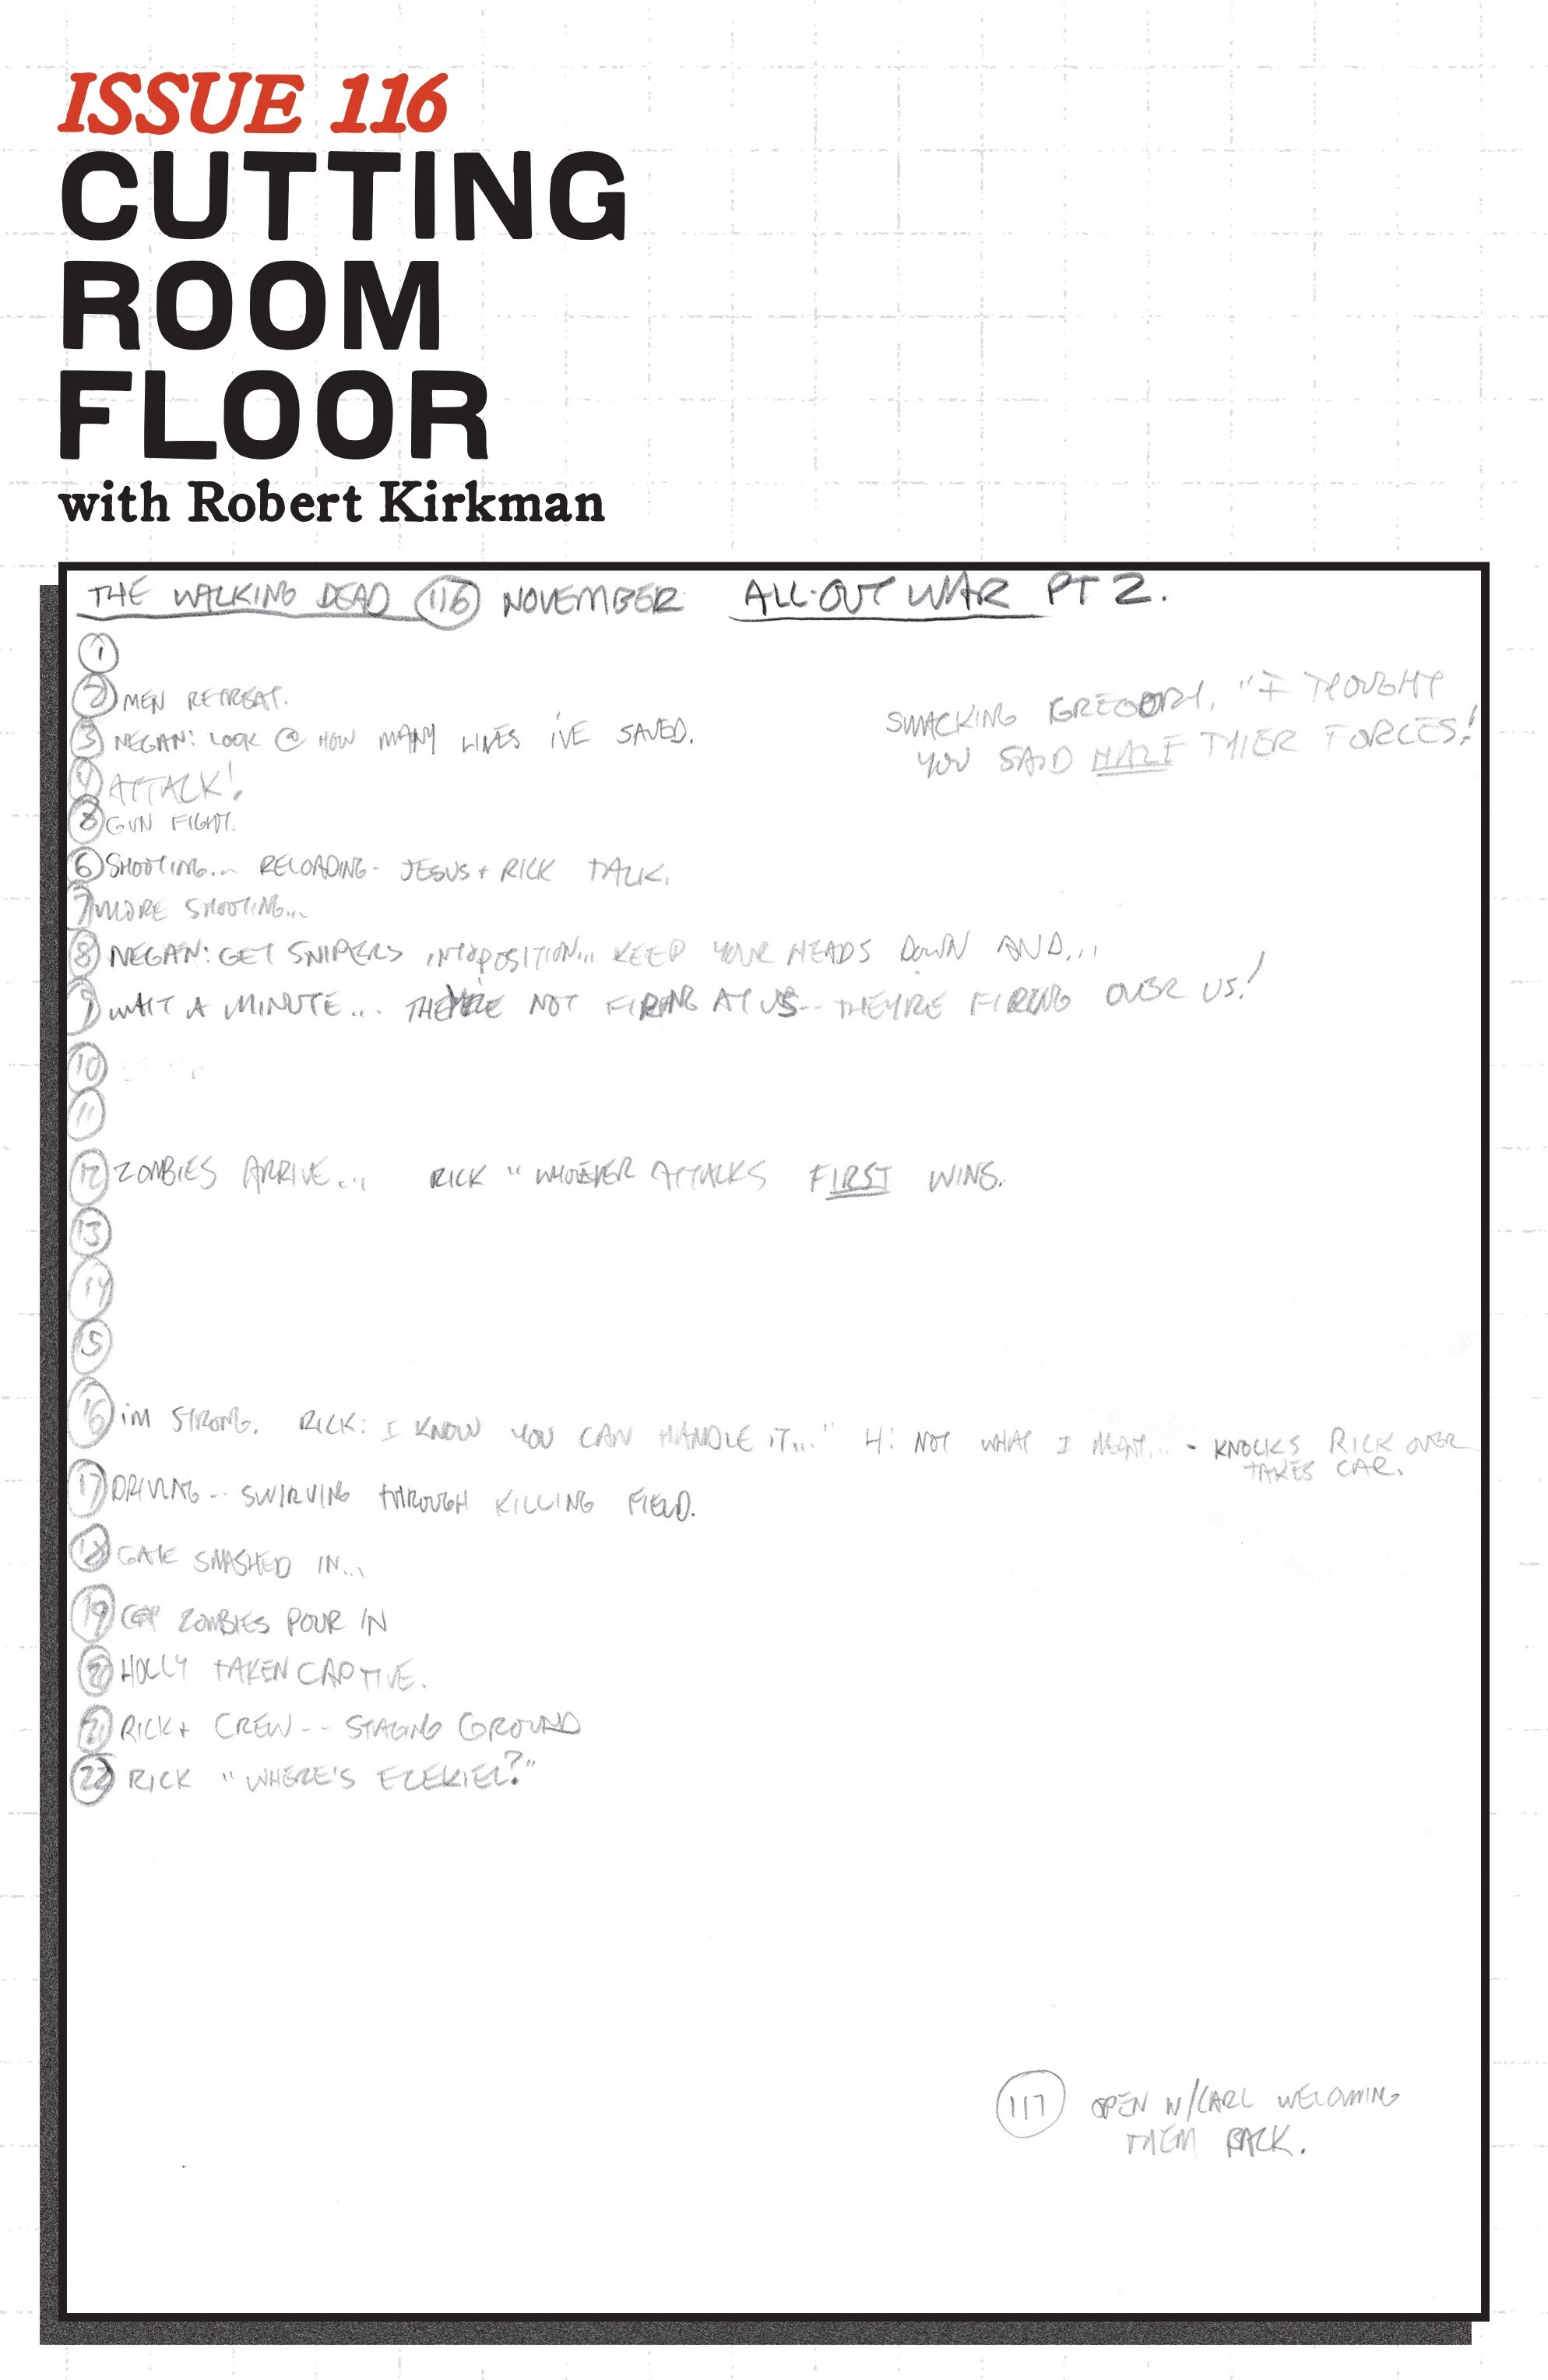 ISSUE 116
CUTTING
ROOM
FLOOR
with Robert Kirkman
THE WALKING DEAD 116 NOVEMBER ALL-OUT WAR PT 2.
1
2 MEN RETREAT.
SMACKING GREGORY, "I THOUGHT
YOU SAID HALF THIER FORCES!
3 NEGAN: LOOK @ HOW MANY LIVES I'VE SAVED.
4 ATTACK!
GUN FIGHT.
6 SHOOTING... RELOADING - JESUS + RICK TALK.
7 MORE SHOOTING...
8 NEGAN: GET SNIPERS INTO POSITION... KEEP YOUR HEADS DOWN AND...
9 WAIT A MINUTE... THEY'RE NOT FIRING AT US-- THEYRE FIRING OVER US!
10
11
12 ZOMBIES ARRIVE... RICK "WHOEVER ATTACKS FIRST WINS.
13
14
15
16 I'M STRONG. RICK: I KNOW YOU CAN HANDLE IT..." H: NOT WHAT I MEANT... - KNOCKS RICK OVER
TAKES CAR.
17 DRIVING-- SWIRVING THROUGH KILLING FIELD.
18 GATE SMASHED IN...
19 ZOMBIES POUR IN
20 HOLLY TAKEN CAPTIVE.
21 RICK + CREW-- STAGING GROUND
22 RICK "WHERE'S EZEKIEL?"
117 OPEN W/CARL WELCOMING
THEM BACK.